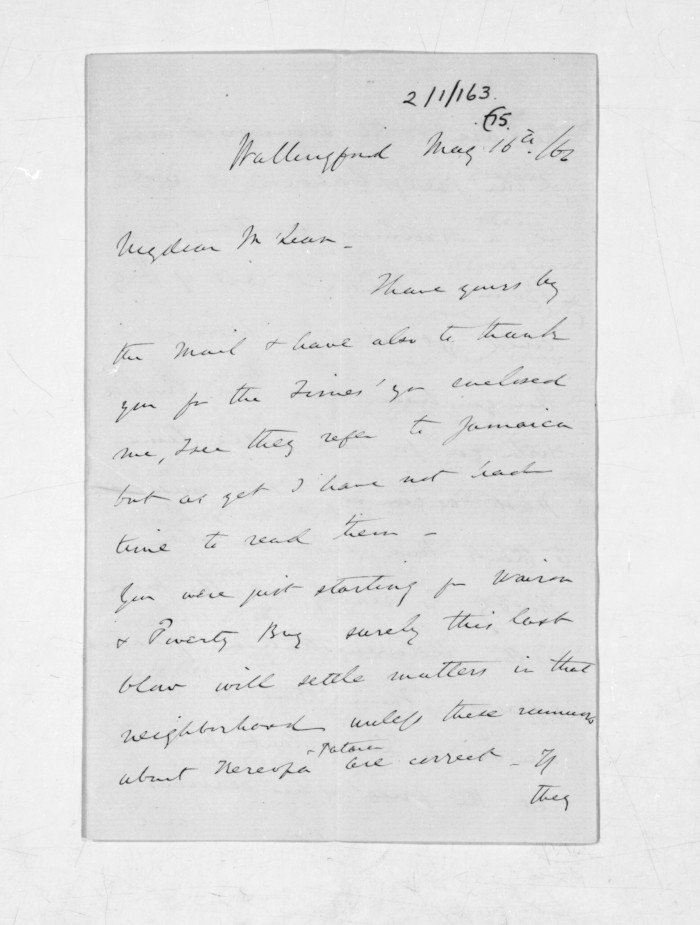 2/1/163.
Wallingford May 16th/66
My dear McLean -
I have yours by
the Mail & have also to thank
you for the 'Times' you enclosed
me, I see they refer to Jamaica
but as yet I have not had
time to read them -
You were just starting for Wairoa
& Poverty Bay surely this last
blow will settle matters in that
neighborhood, unless these rumours
& Patara
about Kereopa are correct - If
they